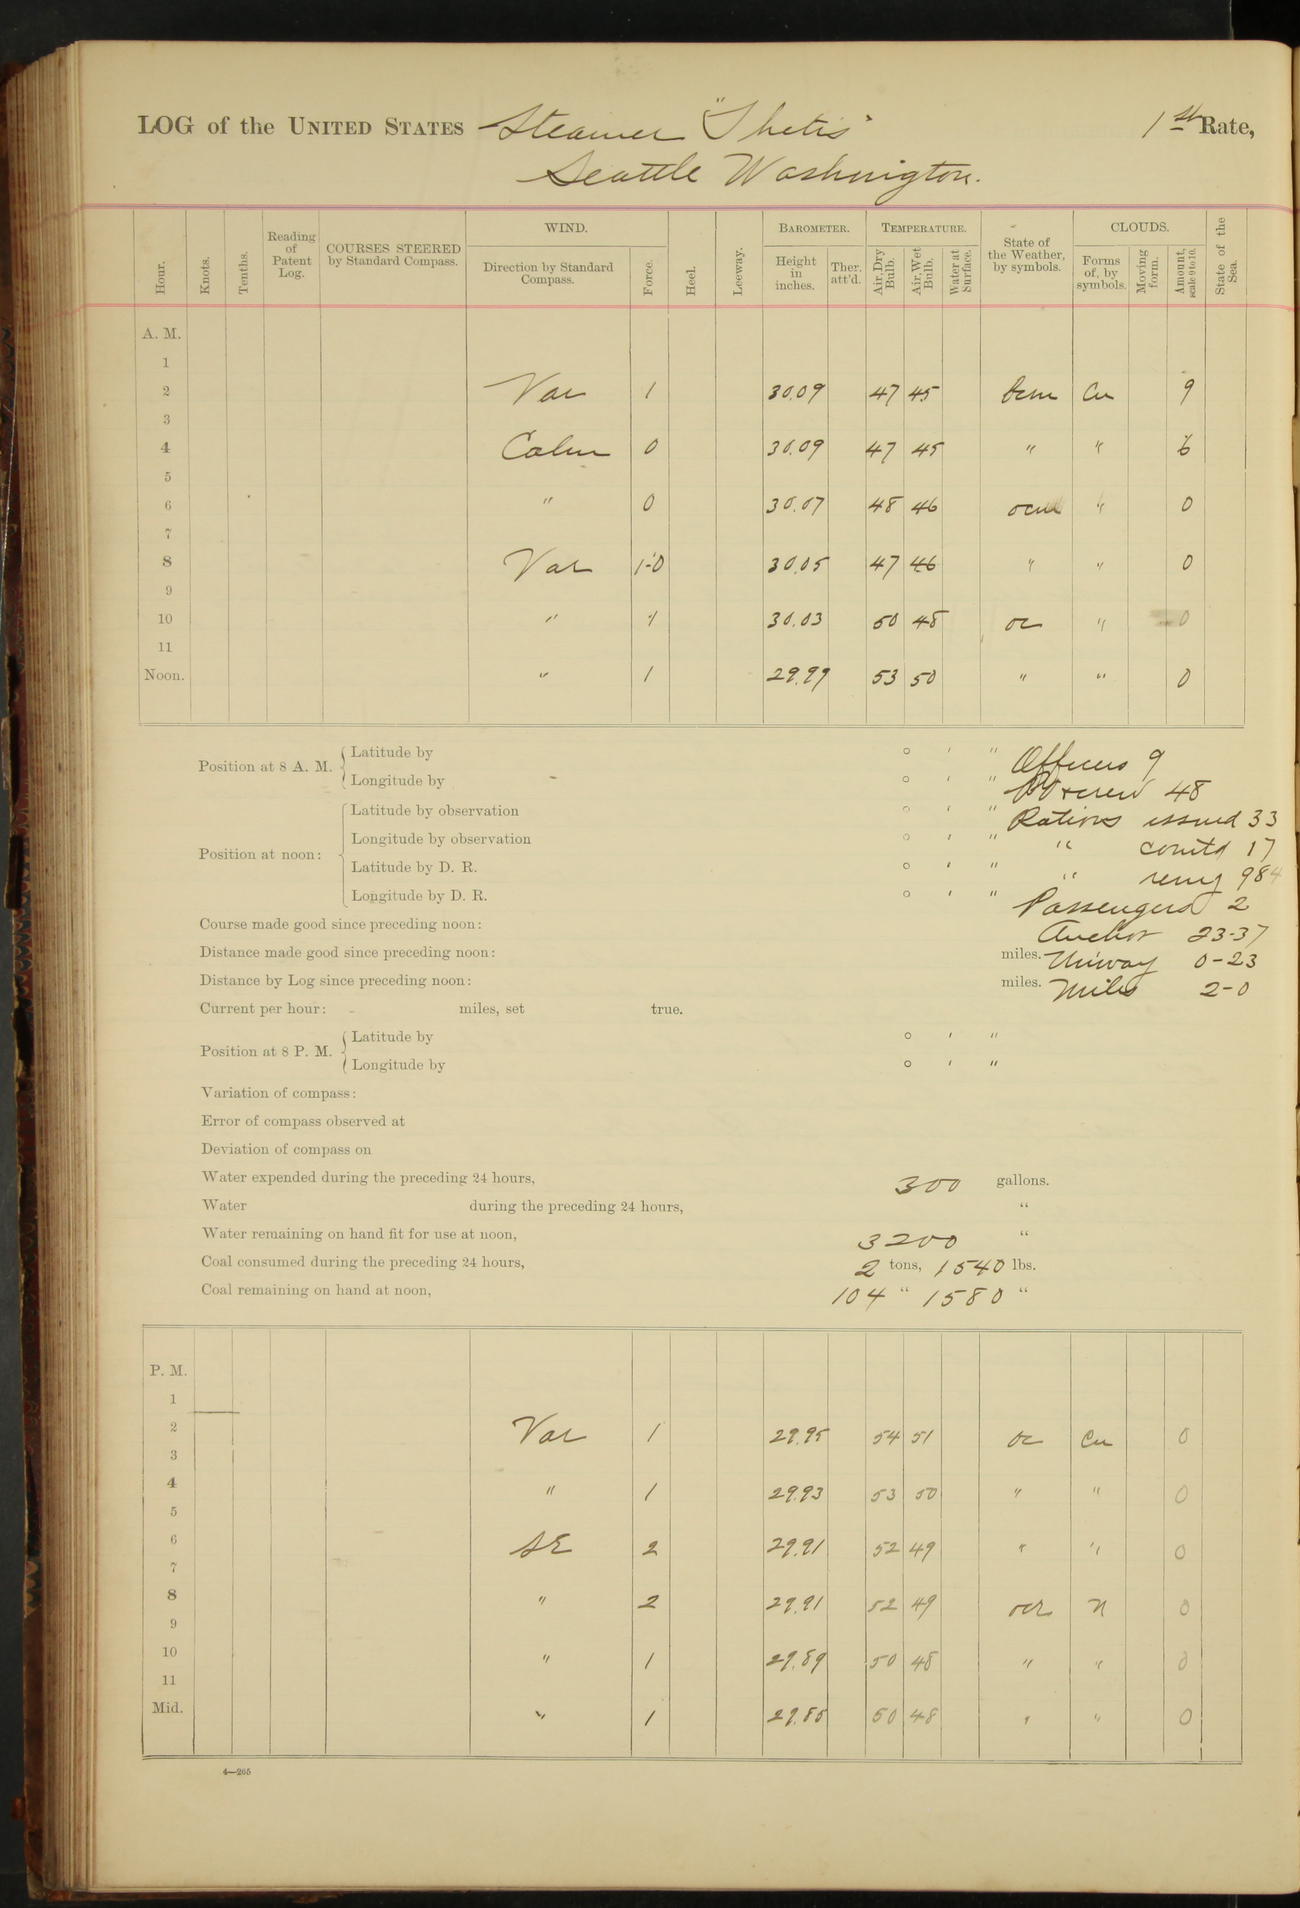 LOG of the UNITED STATES Steamer "Thetis" 1st Rate,
Seattle Washington.
Hour. Knots. Tenths. Reading of Patent Log. COURSES STEERED by Standard Compass. WIND. Direction by Standard Compass. Force. Heel. Leeway. BAROMETER. Height in inches. Ther. att'd. TEMPERATURE. Air, Dry Bulb. Air, Wet Bulb. Water at Surface. State of the Weather, by symbols. CLOUDS. Forms of, by symbols. Moving form. Amount, scale 0 to 10. State of the Sea.
A. M.
1
2 Var 1 30.09 47 45 bcm Cu 9
3
4 Calm 0 30.09 47 45 " " 6
5
6 " 0 30.07 48 46 ocm " 0
7
8 Var 1-0 30.05 47 46 " " 0
9
10 " 1 30.03 50 48 oc " 0
11
Noon. " 1 29.99 53 50 " " 0
Position at 8 A. M. Latitude by ° ' " Officers 9
Longitude by ° ' " crew 48
Position at noon: Latitude by observation ° ' " Rations issued 33
Longitude by observation ° ' " " comtd 17
Latitude by D. R. ° ' " " remg 984
Longitude by D. R. ° ' " Passengers 2
Course made good since preceding noon: Anchor 23-37
Distance made good since preceding noon: miles. Unway 0-23
Distance by Log since preceding noon: miles. Miles 2-0
Current per hour: miles, set true.
Position at 8 P. M. Latitude by ° ' "
Longitude by ° ' "
Variation of compass:
Error of compass observed at
Deviation of compass on
Water expended during the preceding 24 hours, 300 gallons.
Water during the preceding 24 hours, "
Water remaining on hand fit for use at noon, 3200 "
Coal consumed during the preceding 24 hours, 2 tons, 1540 lbs.
Coal remaining on hand at noon, 104 " 1580 "
P. M.
1
2 Var 1 29.95 54 51 oc Cu 0
3
4 " 1 29.93 53 50 " " 0
5
6 SE 2 29.91 52 49 " " 0
7
8 " 2 29.91 52 49 ocr N 0
9
10 " 1 29.89 50 48 " " 0
11
Mid. " 1 29.85 50 48 " " 0
4—265